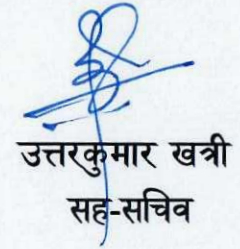 उत्तरकुमार खत्री
सह-सचिव